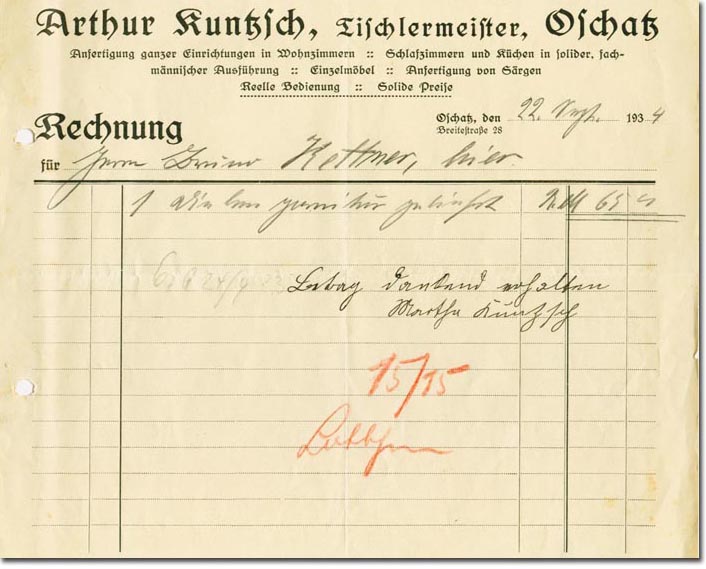 Arthur Kuntzsch, Tischlermeister, Oschatz
Anfertigung ganzer Einrichtungen in Wohnzimmern :: Schlafzimmern und Küchen in solider, fach-
männischer Ausführung :: Einzelmöbel :: Anfertigung von Särgen
Reelle Bedienung :: Solide Preise
Oschatz, den 22. Sept. 1934
Breitestraße 28
Rechnung
für Herrn Bruno Kettner, hier.
1 Dielen garnitur geliefert RM 65
Betrag dankend erhalten
Martha Kuntzsch
15/15